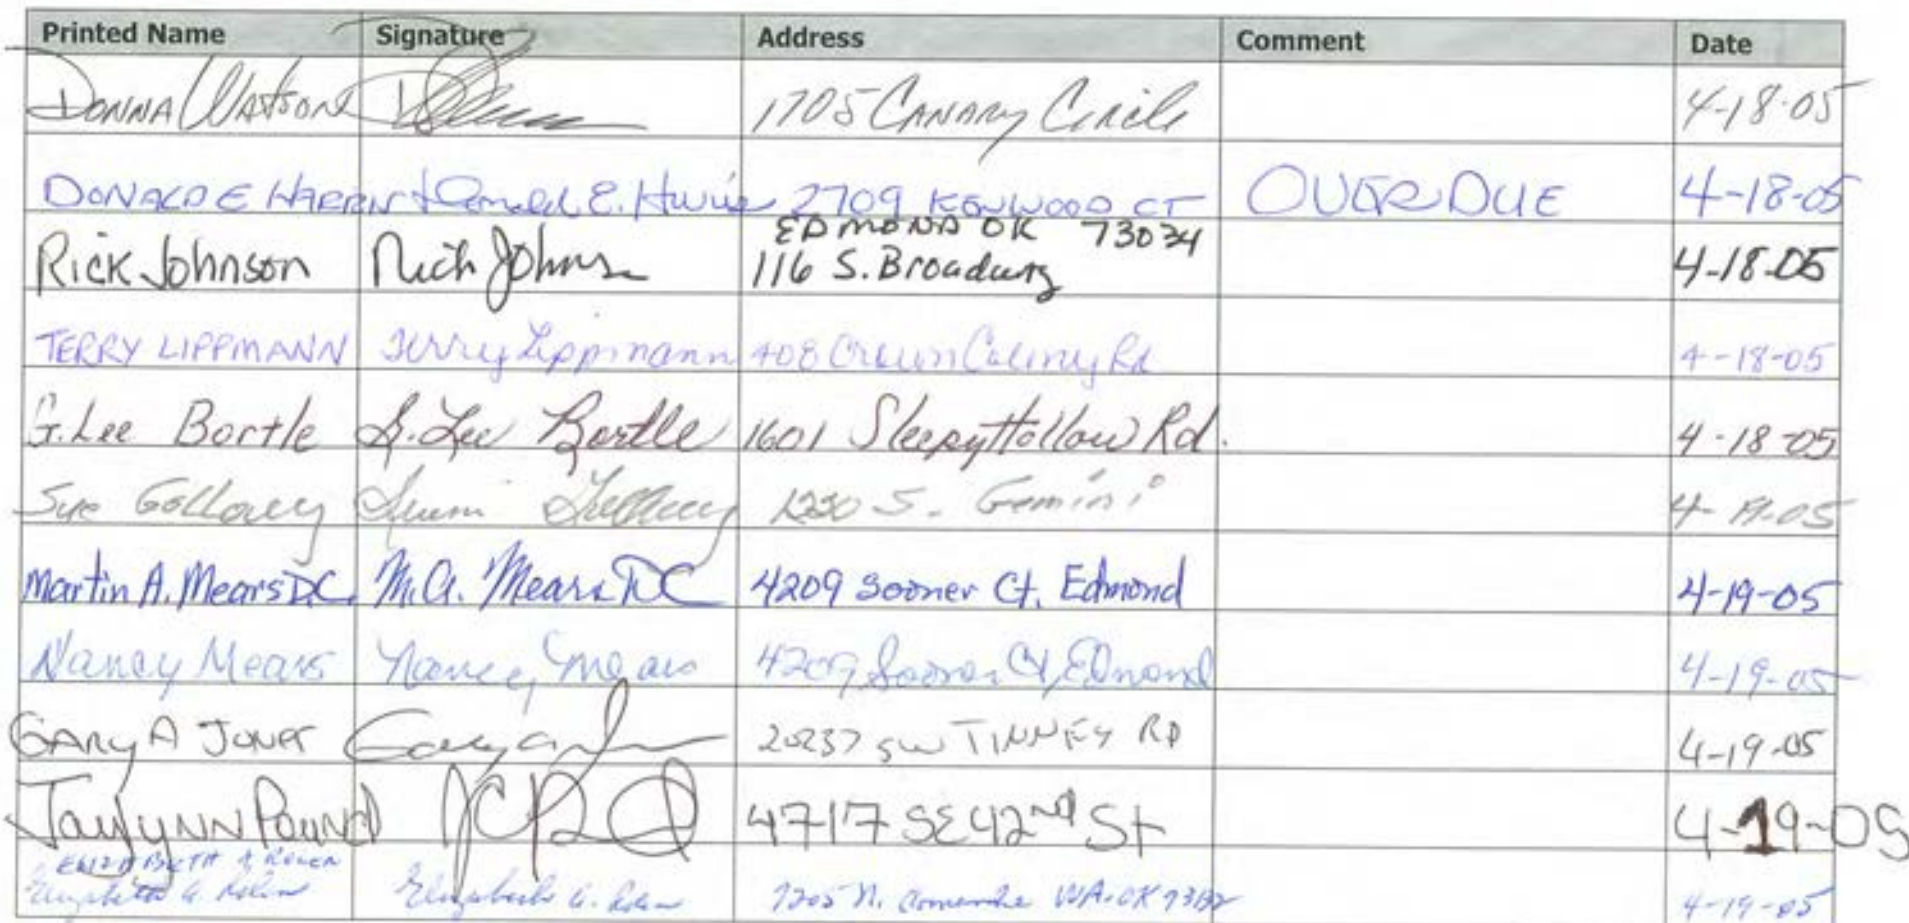 Printed Name Signature Address Comment Date
DONNA WATSON 1705 CANARY Circle 4-18-05
DONALD E HARRIS Donald E. Harris 2709 KENWOOD CT OVERDUE 4-18-05
EDMOND OK 73034
Rick Johnson Rick Johnson 116 S. Broadway 4-18-05
TERRY LIPPMANN Terry Lippmann 408 Crown Colony Rd 4-18-05
G. Lee Bortle G. Lee Bortle 1601 Sleepy Hollow Rd. 4-18-05
Sue 1230 S. Gemini 4-19-05
Martin A. Mears D.C. M.A. Mears DC 4209 Sooner Ct. Edmond 4-19-05
Nancy Mears Nancy Mears 4209 Sooner Ct, Edmond 4-19-05
GARY A JONES Gary A 20237 SW TINNEY RD 4-19-05
Jaulynn Pound 4717 SE 42nd St 4-19-05
ELIZABETH A ROLEN
Elizabeth A. Rolen Elizabeth A. Rolen 7205 N. Comanche WA. OK 73132 4-19-05